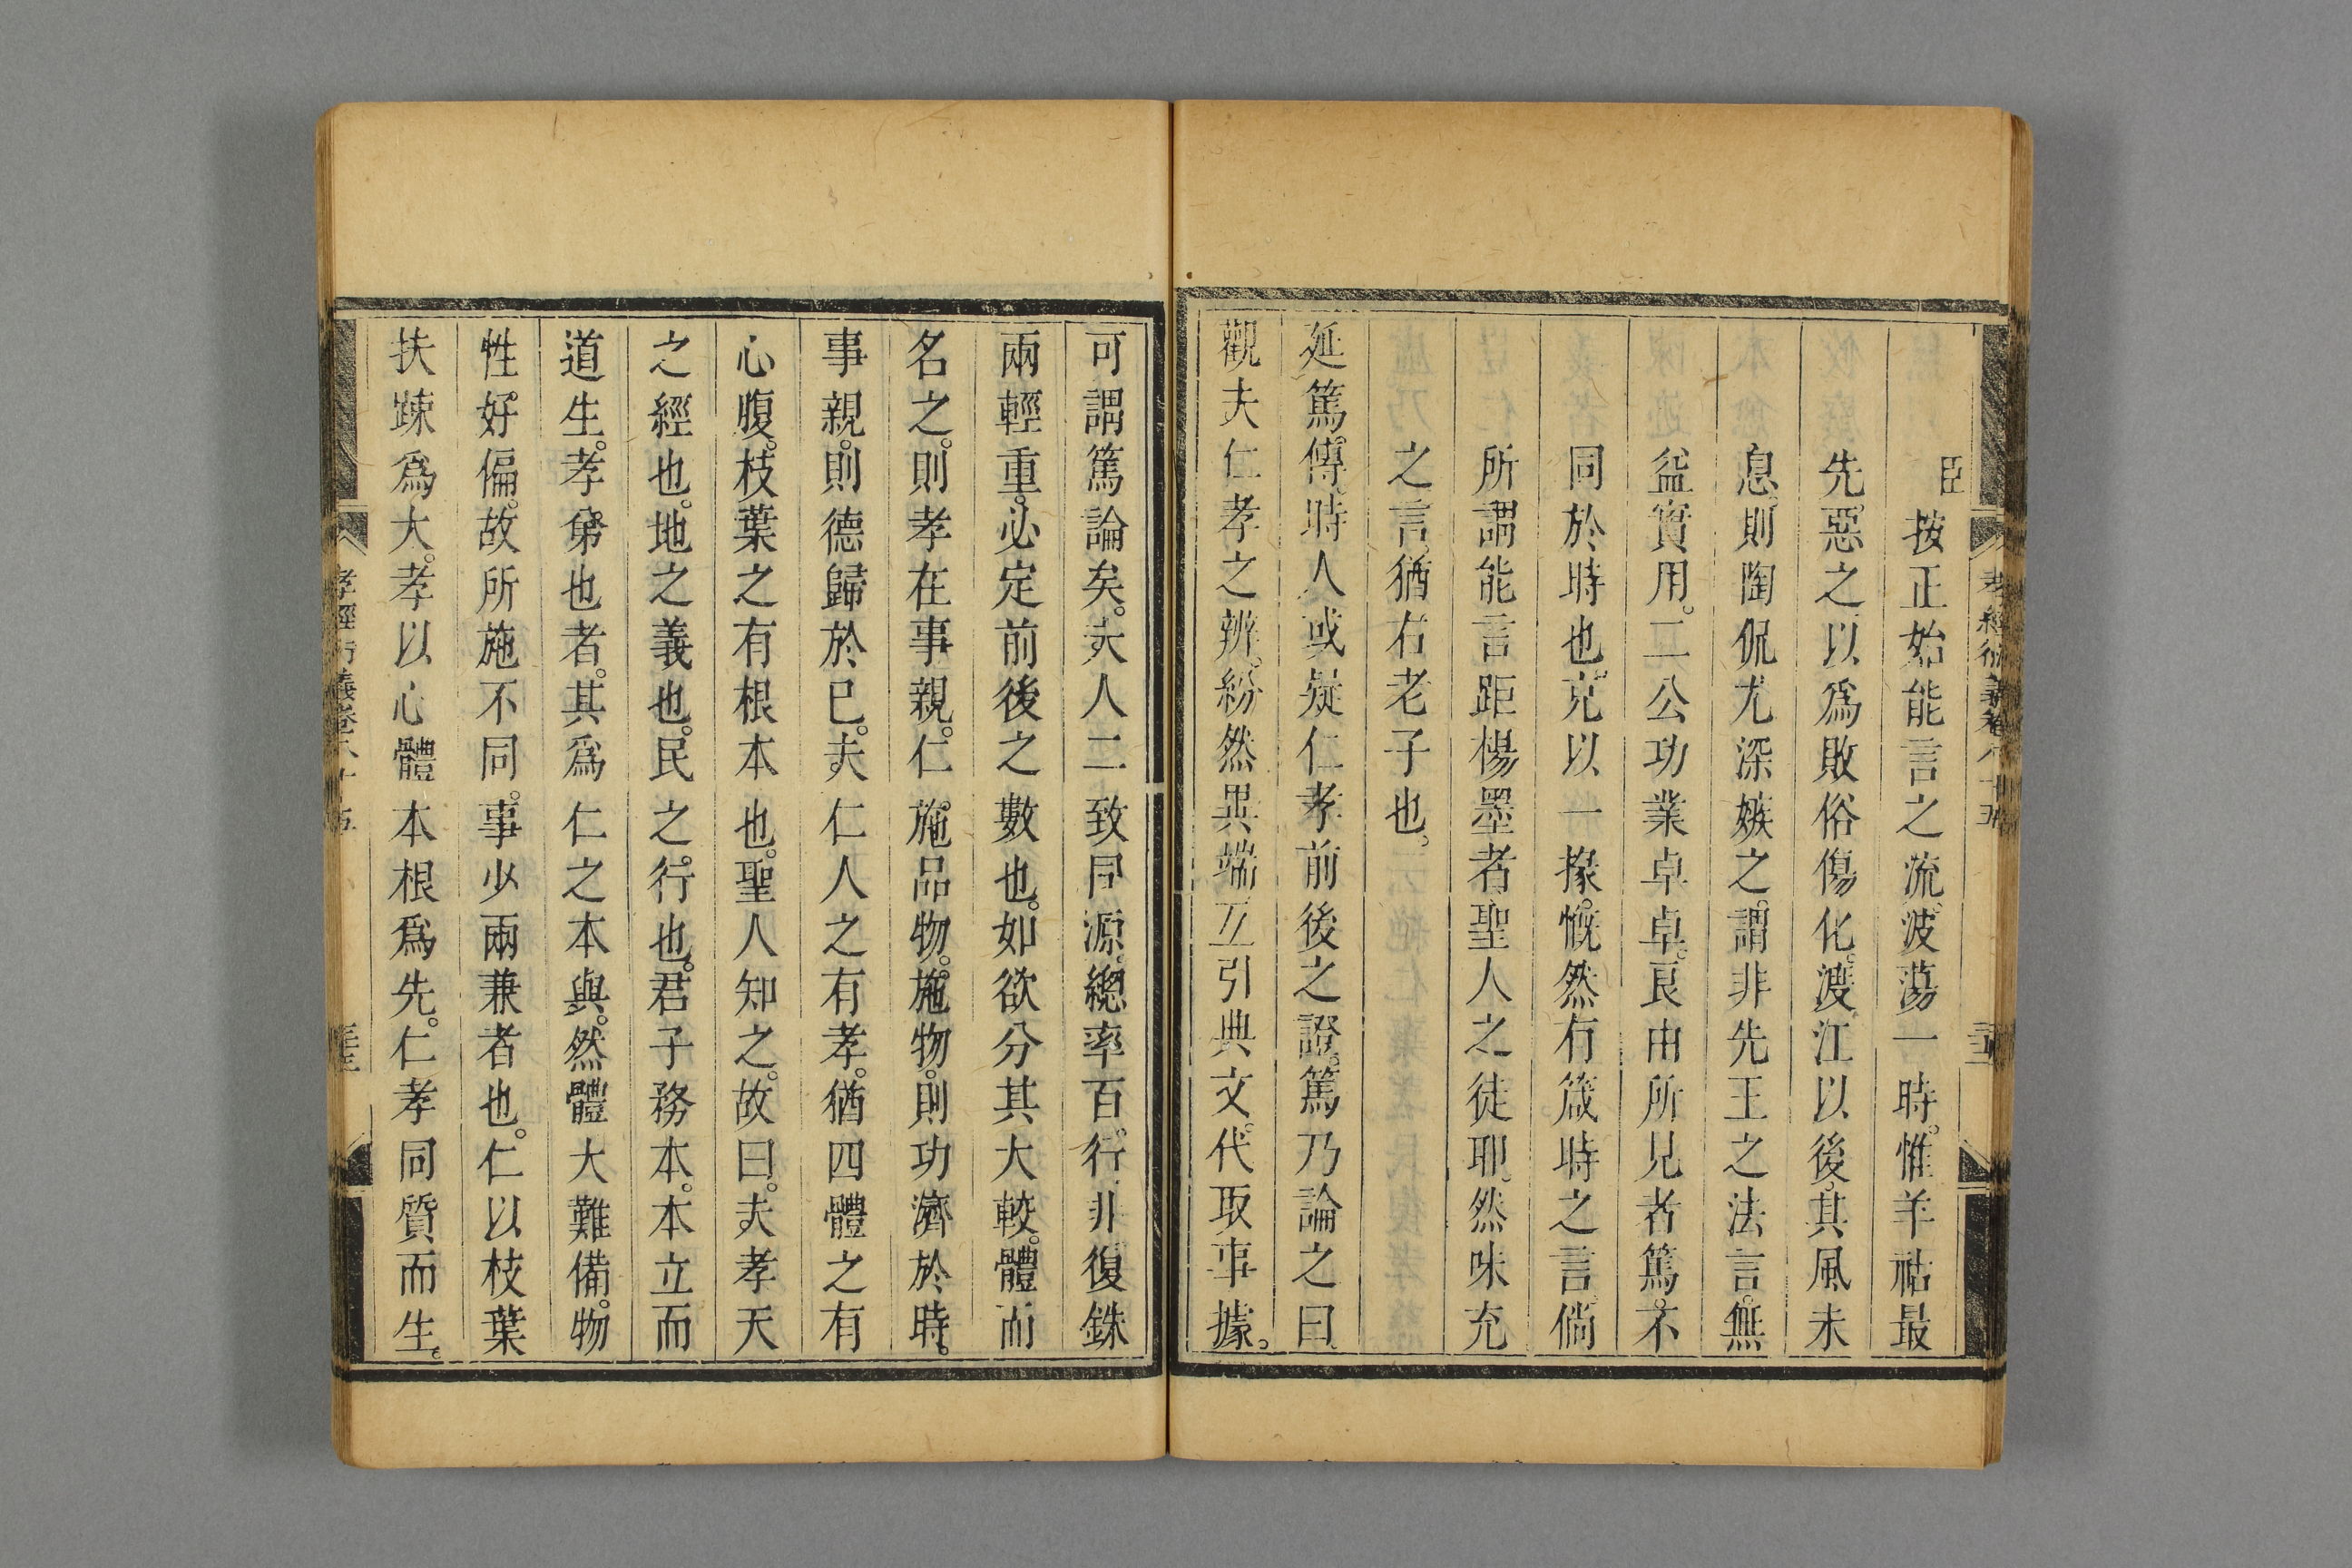 孝經衍義卷八十五
臣按正始能言之流。波蕩一時。惟羊祜最
先惡之。以爲敗俗傷化。渡江以後。其風未
息。則陶侃尤深嫉之。謂非先王之法言。無
益實用。二公功業卓卓。良由所見者篤。不
同於時也。充以一掾。慨然有箴時之言。倘
所謂能言距楊墨者聖人之徒耶。然味充
之言。猶右老子也。
延篤傳。時人或疑仁孝前後之證。篤乃論之曰。
觀夫仁孝之辨。紛然異端。互引典文。代取事據。
可謂篤論矣。夫人二致同源。總率百行。非復銖
兩輕重。必定前後之數也。如欲分其大較。體而
名之。則孝在事親。仁施品物。施物。則功濟於時。
事親。則德歸於已。夫仁人之有孝。猶四體之有
心腹。枝葉之有根本也。聖人知之。故曰。夫孝天
之經也。地之義也。民之行也。君子務本。本立而
道生。孝弟也者。其爲仁之本與。然體大難備。物
性好偏。故所施不同。事少兩兼者也。仁以枝葉
扶疎爲大。孝以心體本根爲先。仁孝同質而生。
孝經衍義卷八十五